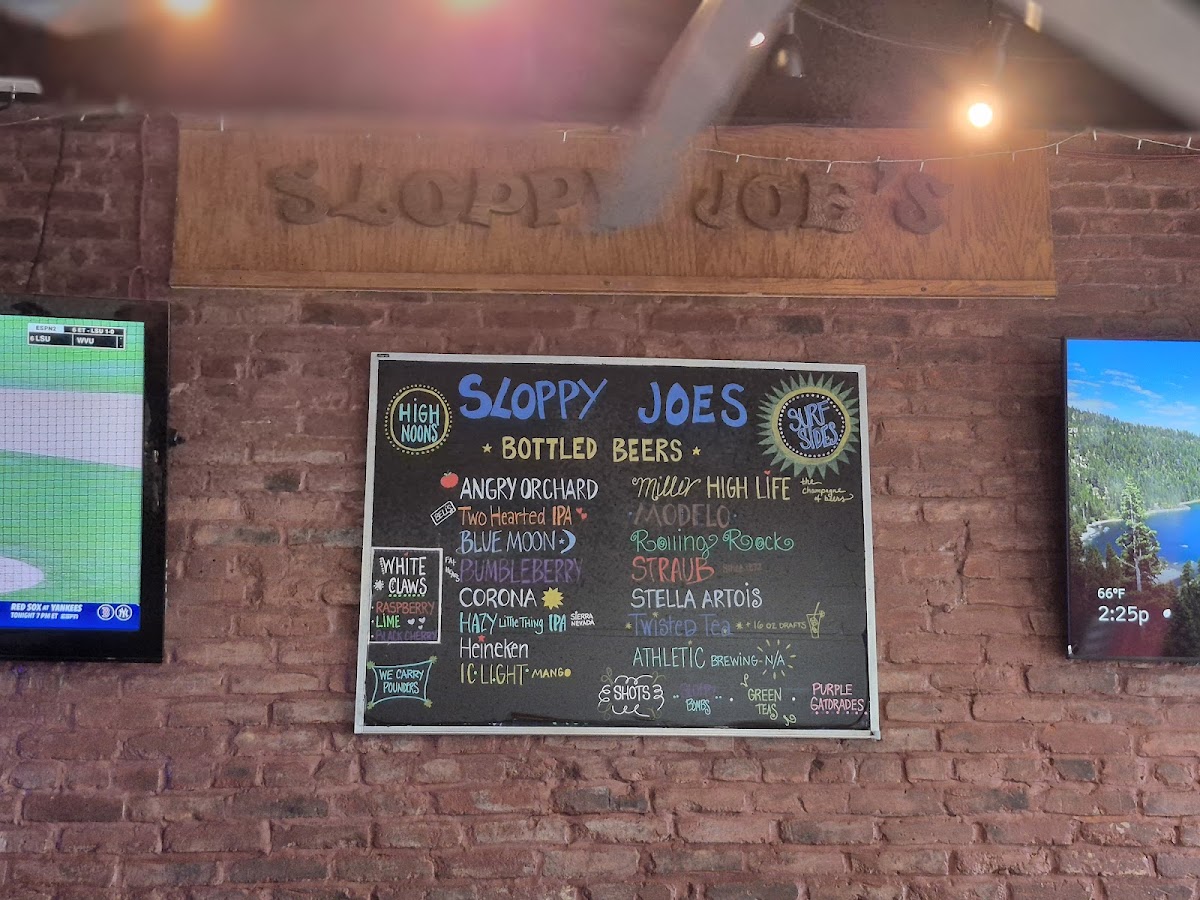 SLOPPY JOE'S
ESPN2 6 ET - LSU 1-0
6 LSU WVU
RED SOX at YANKEES
TONIGHT 7 PM ET ESPN
HIGH NOONS
SLOPPY JOES
SURF SIDES
★ BOTTLED BEERS ★
ANGRY ORCHARD
BELLS
TWO HEARTED IPA
BLUE MOON
FAT HEADS
BUMBLEBERRY
CORONA
HAZY LITTLE THING IPA SIERRA NEVADA
Heineken
IC LIGHT MANGO
Miller HIGH LIFE the champagne of beers
MODELO
Rolling Rock
STRAUB
STELLA ARTOIS
Twisted Tea + 16 OZ DRAFTS
ATHLETIC BREWING - N/A
WHITE CLAWS
RASPBERRY
LIME
BLACK CHERRY
WE CARRY POUNDERS
SHOTS
BOMBS
GREEN TEAS
PURPLE GATORADES
66°F
2:25p